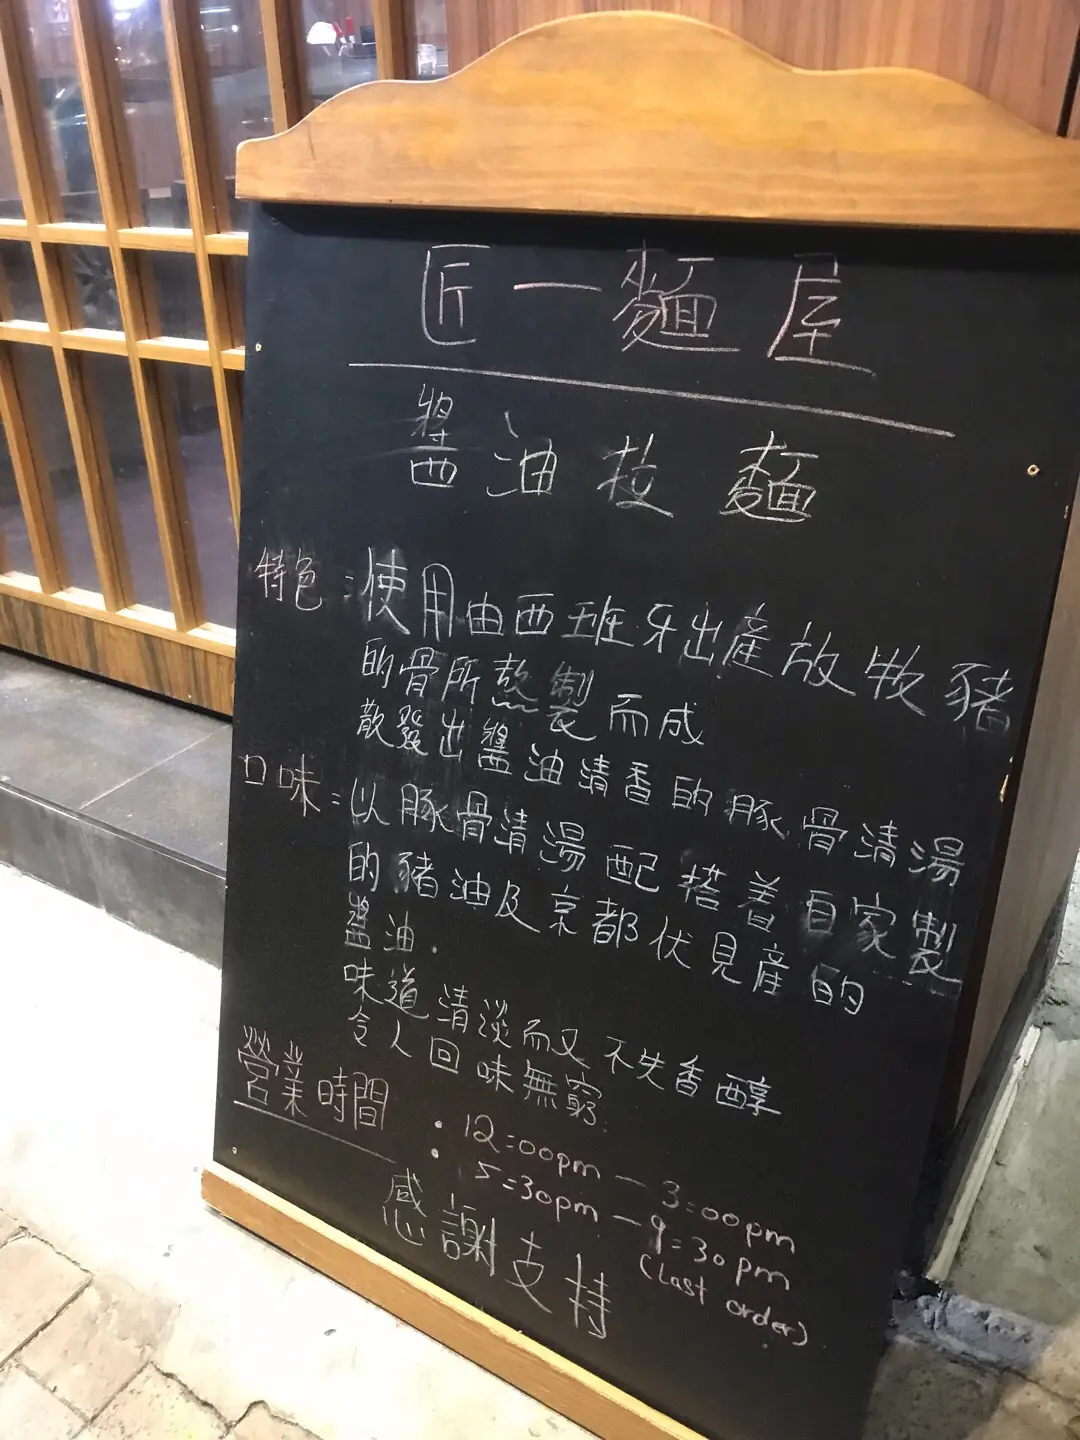 匠一麵屋
醬油拉麵
特色：使用由西班牙出產放牧豬
的骨所熬製而成
散發出醬油清香的豚骨清湯
口味：以豚骨清湯配搭着自家製
的豬油及京都伏見産的
醬油.
味道清淡而又不失香醇
令人回味無窮.
營業時間：12:00pm — 3:00pm
5:30pm — 9:30pm
(Last order)
感謝支持